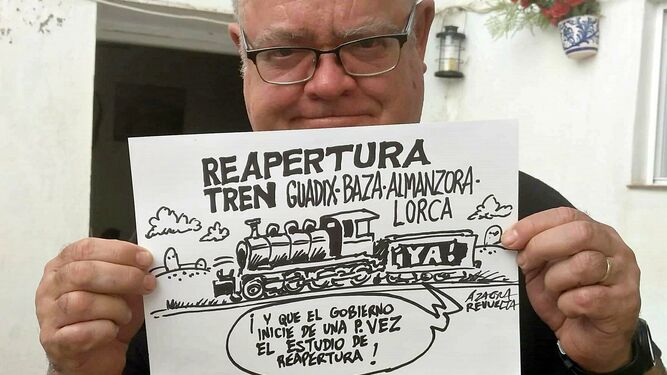 REAPERTURA
TREN GUADIX·BAZA·ALMANZORA·
LORCA
¡YA!
AZAGRA
REVUELTA
¡ Y QUE EL GOBIERNO
INICIE DE UNA P. VEZ
EL ESTUDIO DE
REAPERTURA !